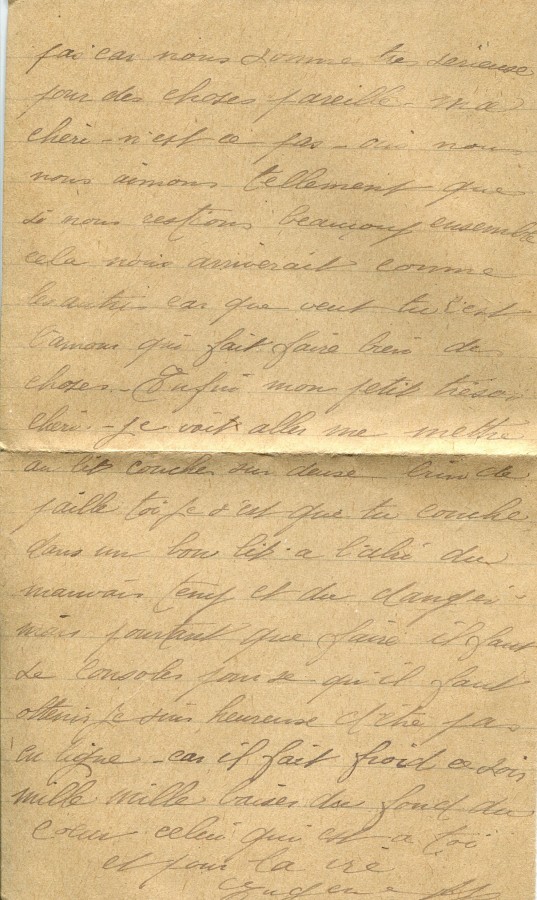 fai car nous sommes tres serieuse
pour des choses pareille - ma
cheri - n'est ce pas - oui nous
nous aimons tellement que
si nous restions beaucoup ensemble
cela nous arriverait comme
les autres car que veut tu c'est
l'amour qui fait faire bien des
choses - Enfin mon petit trésor
cheri - je vait aller me mettre
au lit coucher sur deuse brin de
paille toi je s'est que tu couche
dans un bon lit a l'abri du
mauvais temp et du danger -
mais pourtant que faire il faut
se consoler pour se qu'il faut
obtenir je suis heureuse d'être pas
en ligne - car il fait froid ce soir
mille mille baiser du fond du
coeur celui qui est a toi
et pour la vie
Eugene